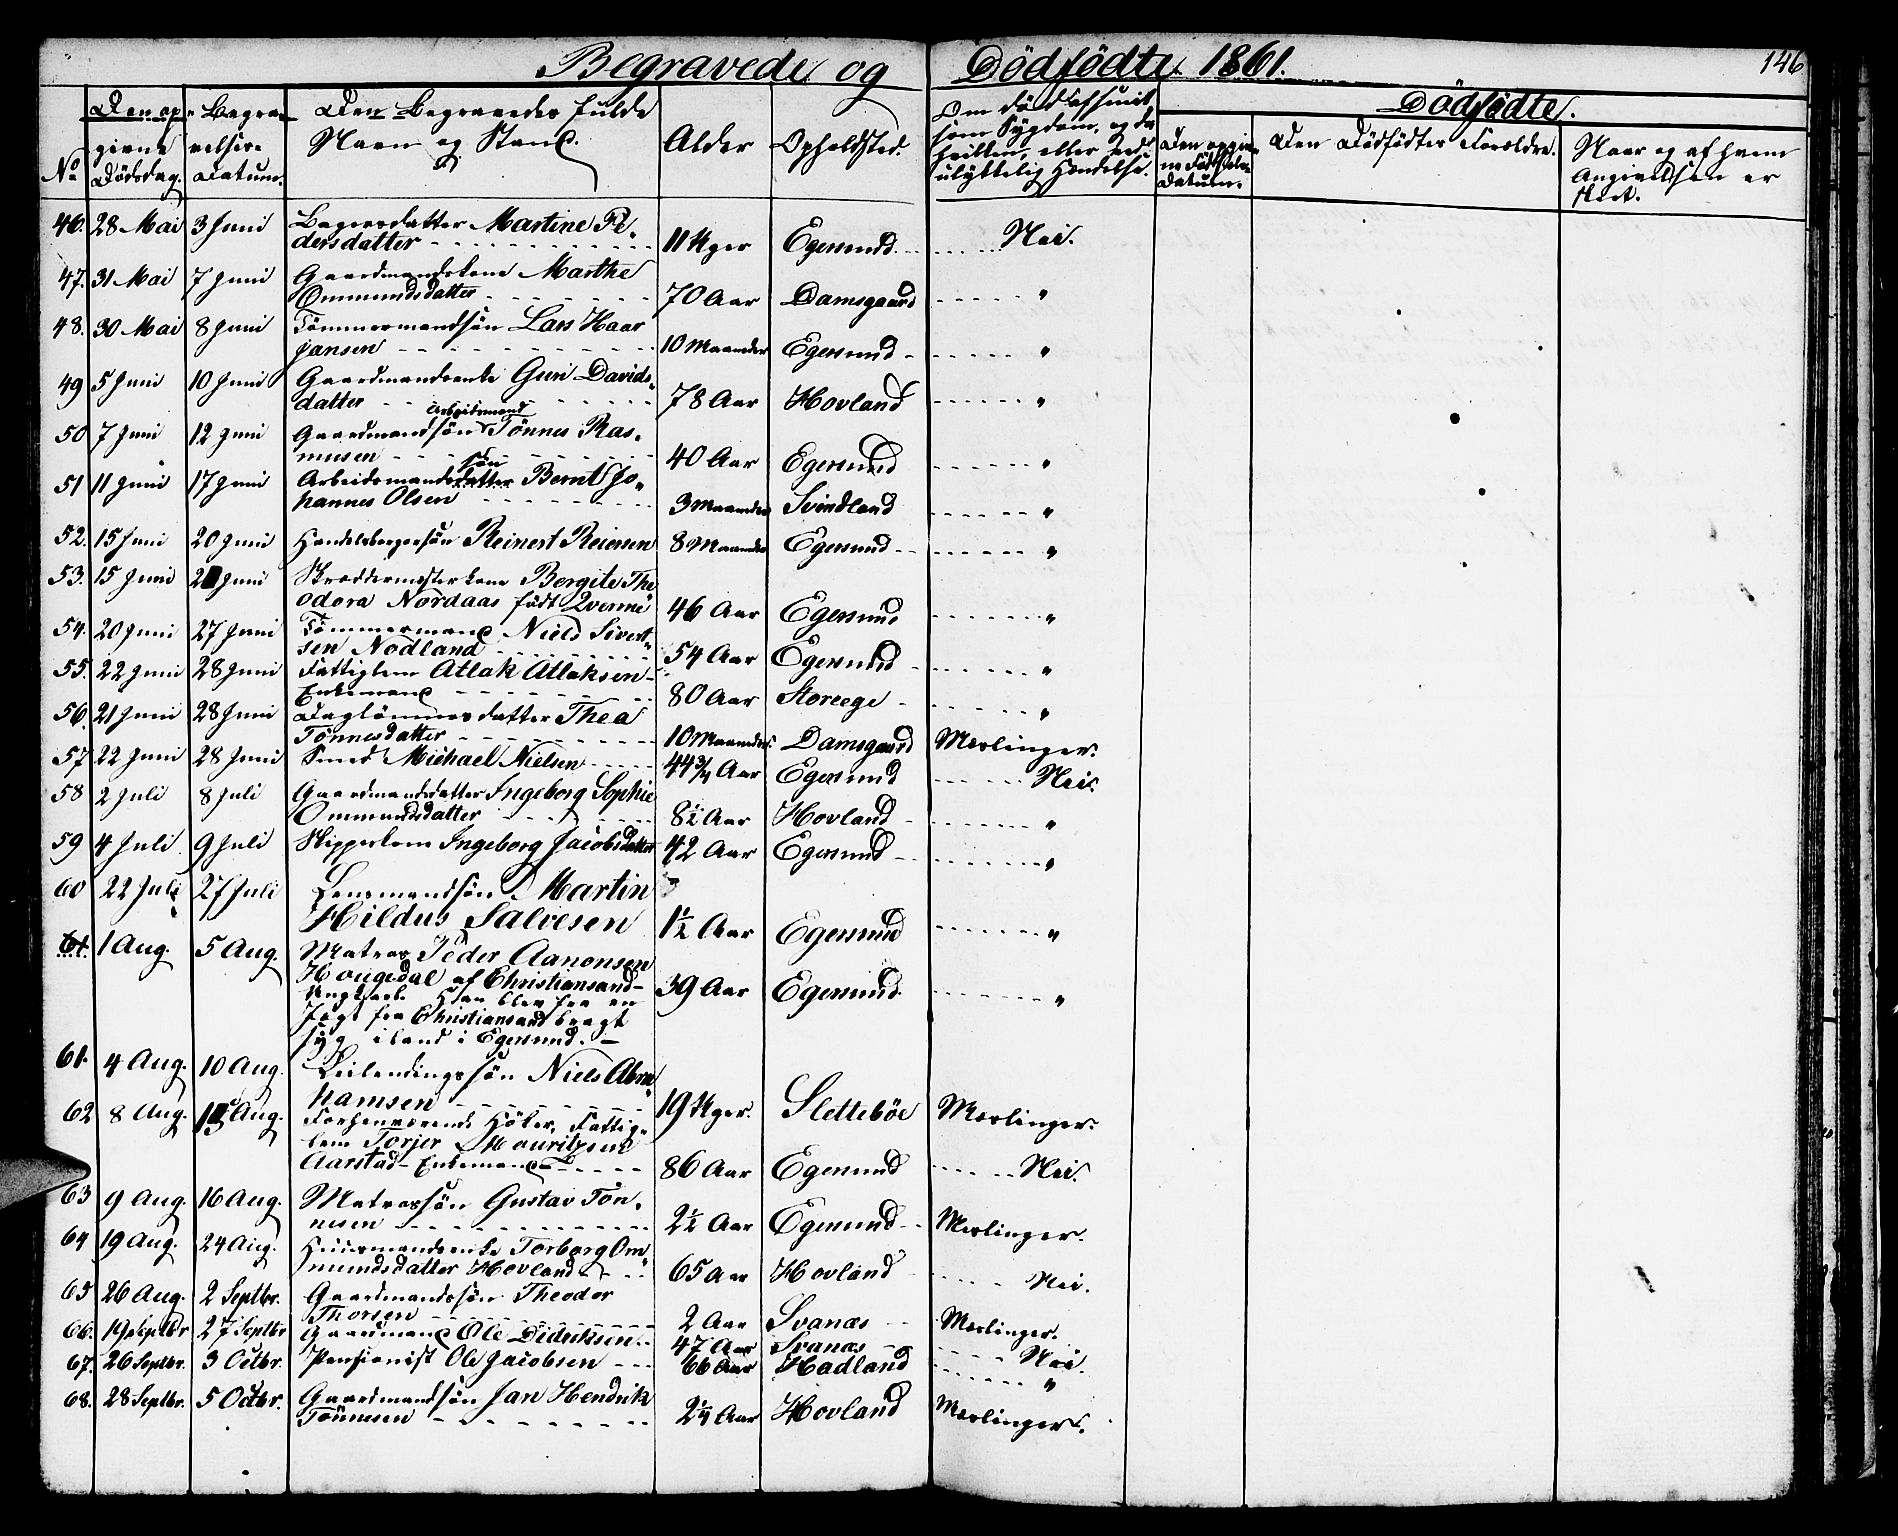 Begravede og Dödfödte 1861.
146
Den op- Begra- Den Begravedes fulde Om Död afsuit Dödfödte.
givne velses- Navn og Stand. Alder Opholdsted. som Sygdom, og da Den opgiv- Den Dödfödtes Forældre. Naar og af hvem
No Dödsdag. Datum. hvilken, eller ved ne Födsels- Angivelsen er
ulykkelig Hændelse. Datum. skeet.
46. 28 Mai 3 Juni Bagersdatter Martine Pe-
dersdatter 11 Uger Egersund Nei.
47. 31 Mai 7 Juni Gaardmandskone Marthe
Ommundsdatter 70 Aar Damsgaard "
48. 30 Mai 8 Juni Tömmermandsön Lars Haar
jansen 10 Maaneder Egersund "
49 5 Juni 10 Juni Gaardmandsenke Guri Davids-
datter 78 Aar Hovland "
Arbeidsmand
50 7 Juni 12 Juni Gaardmandsön Tönnes Ras-
musen 40 Aar Egersund "
sön
51 11 Juni 17 Juni Arbeidsmandsdatter Bernt Jo-
hannes Olsen 3 Maaneder Svindland "
52. 15 Juni 20 Juni Handelsborgersön Reinert Reiersen 8 Maaneder Egersund "
53. 15 Juni 2 Juni Skræddermesterkone Bergite The
odora Nordaas födt Qvenne 46 Aar Egersund "
54. 20 Juni 27 Juni Tömmermand Niels Sivert-
sen Nodland 54 Aar Egersund "
55. 22 Juni 28 Juni Fattiglem Atlak Atlaksen
Enkemand 80 Aar Storeege "
56. 21 Juni 28 Juni Daglönnersdatter Thea
Tönnesdatter 10 Maaneder Damsgaard Mæslinger.
57 22 Juni 28 Juni Smed Michael Nielsen 44 3/4 Aar Egersund Nei
58 2 Juli 8 Juli Gaardmandsdatter Ingeborg Sophie
Ommundsdatter 8 1/2 Aar Hovland "
59 4 Juli 9 Juli Skipperkone Ingeborg Jacobsdatter 42 Aar Egersund "
60 22 Juli 27 Juli Lensmandsön Martin
Hildus Salvesen 1 1/2 Aar Egersund "
61. 1 Aug. 5 Aug. Matros Peder Aanonsen
Hougedal af Christiansand
Ungkarl. Han blev fra en
Jagt fra Christiansand bragt
syg iland i Egersund. 39 Aar Egersund "
61. 4 Aug. 10 Aug. Leilendingssön Niels Abra-
hamsen 19 Uger. Sletteböe Mæslinger.
62 8 Aug. 13 Aug. Forhenværende Höker, Fattig-
lem Torjer Mouritzsen
Aarstad Enkemand 86 Aar Egersund Nei.
63 9 Aug. 16 Aug. Matrossön Gustav Tön-
nesen 2 1/2 Aar Egersund Mæslinger.
64 19 Aug. 24 Aug. Huusmandsenke Torborg Om-
mundsdatter Hovland 65 Aar Hovland Nei.
65 26 Aug. 2 Septbr. Gaardmandssön Theodor
Thorsen 2 Aar Svanæs Mæslinger.
66. 19 Septbr 27 Septbr Gaardmand Ole Didriksen 47 Aar Svanæs Nei
67. 26 Septbr. 3 Octbr. Pensionist Ole Jacobsen 66 Aar Hadland "
68. 28 Septbr. 5 Octbr. Gaardmandsön Jan Hendrik
Tönnesen 2 1/4 Aar Hovland Mæslinger.